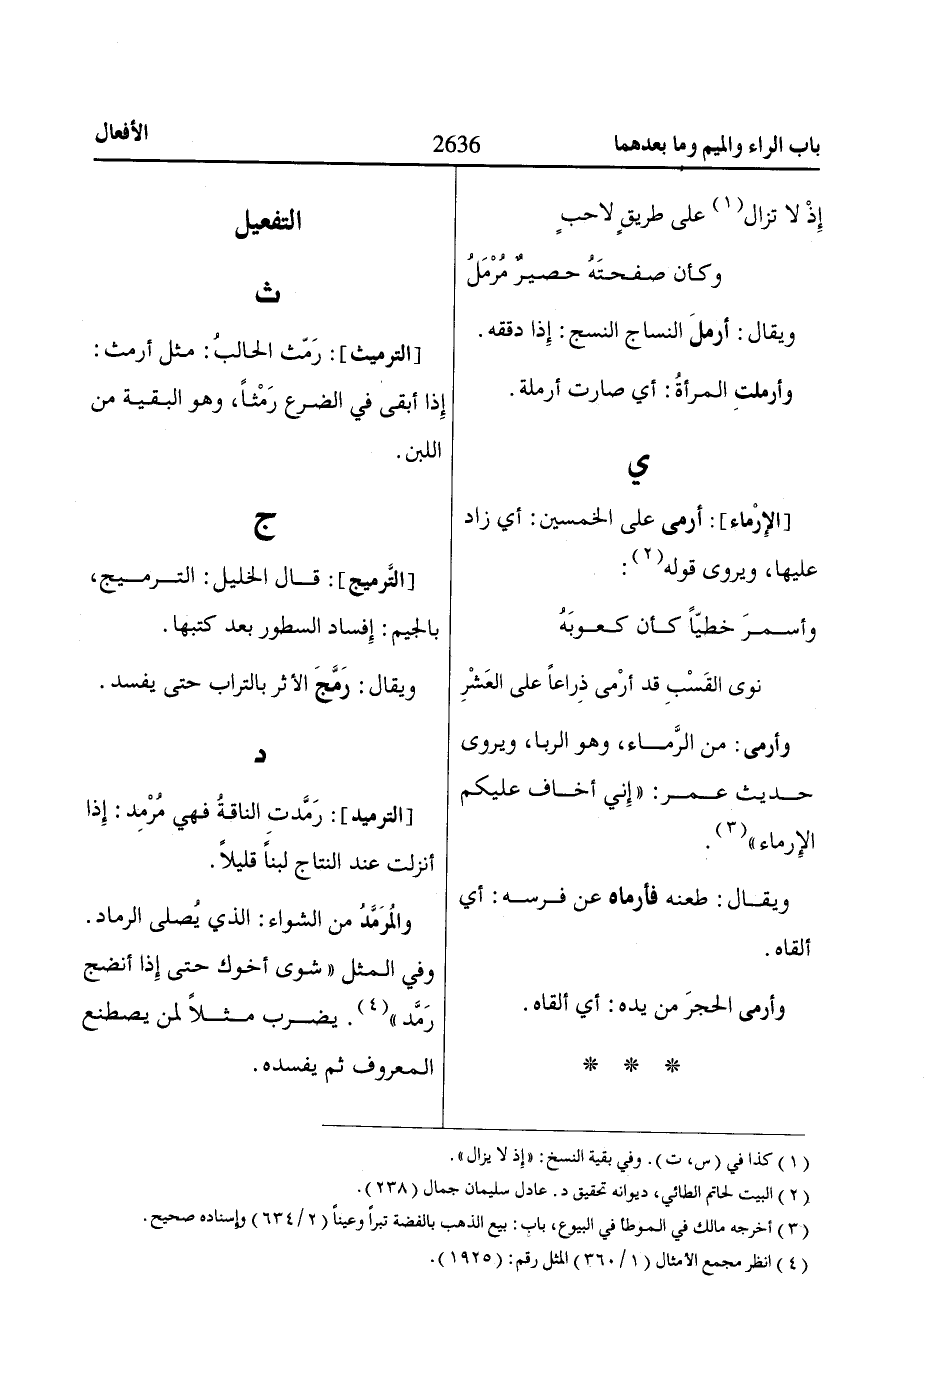 باب الراء والميم وما بعدهما
2636
الأفعال
إذْ لا تزال(١) على طريقٍ لاحبٍ
وكأن صفحتَهُ حصيرٌ مُرْمَلُ
ويقال: أرملَ النساج النسج: إذا دققه.
وأرملتِ المرأةُ: أي صارت أرملة.
ي
[الإرْماء]: أرمى على الخمسين: أي زاد
عليها، ويروى قوله(٢):
وأسمرَ خطيّاً كأن كعوبَهُ
نوى القَسْبِ قد أرْمى ذِراعاً على العَشْرِ
وأرمى: من الرَّماء، وهو الربا، ويروى
حديث عمر: «إني أخاف عليكم
الإرماء»(٣).
ويقال: طعنه فأرماه عن فرسه: أي
ألقاه.
وأرمى الحجرَ من يده: أي ألقاه.
* * *
التفعيل
ث
[الترميث]: رَمَّث الحالبُ: مثل أرمث:
إذا أبقى في الضرع رَمْثاً، وهو البقية من
اللبن.
ج
[التَّرميج]: قال الخليل: الترميج،
بالجيم: إفساد السطور بعد كتبها.
ويقال: رَمَّجَ الأثر بالتراب حتى يفسد.
د
[الترميد]: رَمَّدتِ الناقةُ فهي مُرْمِد: إذا
أنزلت عند النتاج لبناً قليلاً.
والمُرَمَّدُ من الشواء: الذي يُصلى الرماد.
وفي المثل «شوى أخوك حتى إذا أنضج
رَمَّد»(٤). يضرب مثلاً لمن يصطنع
المعروف ثم يفسده.
(١) كذا في (س، ت). وفي بقية النسخ: «إذ لا يزال».
(٢) البيت لحاتم الطائي، ديوانه تحقيق د. عادل سليمان جمال (٢٣٨).
(٣) أخرجه مالك في الموطأ في البيوع، باب: بيع الذهب بالفضة تبراً وعيناً (٢/ ٦٣٤) وإسناده صحيح.
(٤) انظر مجمع الأمثال (١/ ٣٦٠) المثل رقم: (١٩٢٥).